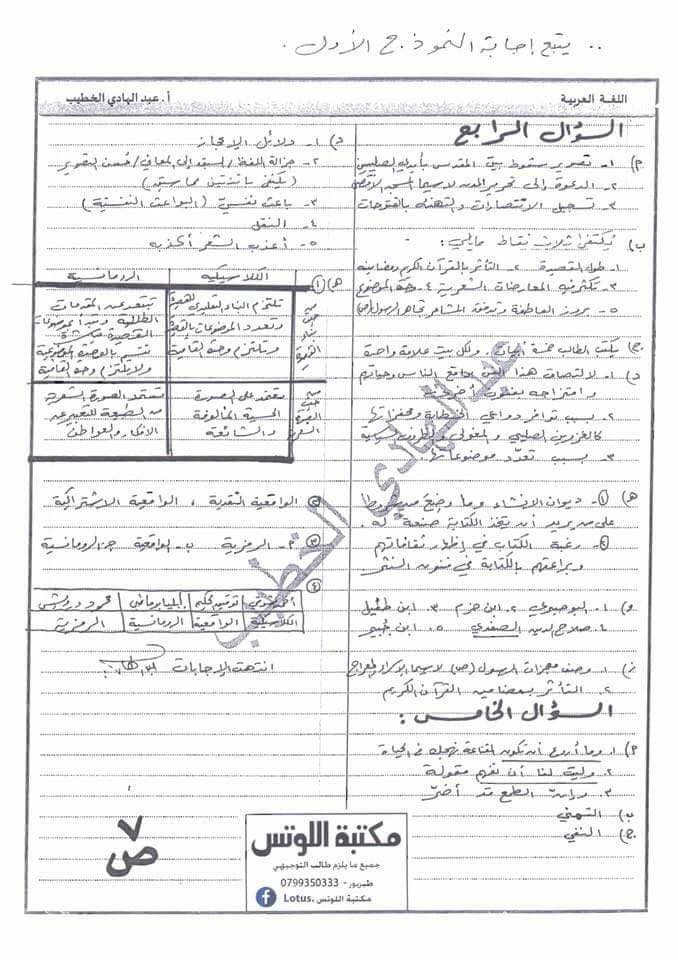 .. يتبع إجابة النموذج الأول .
اللغة العربية
أ. عبد الهادي الخطيب
السؤال الرابع
م) ١- تصوير سقوط بيت المقدس بأيدي الصليبيين
٢- الدعوة إلى تحرير المدن لاسيما المسجد الأقصى
٣- تسجيل الانتصارات والتهنئة بالفتوحات
ب) يُكتفى بثلاث نقاط مما يلي: -
١- طول القصيدة ٢- التأثر بالقرآن الكريم ومضامينه
٣- تكثر فيه المعارضات الشعرية ٤- وحدة الموضوع
٥- بروز العاطفة وتدفق المشاعر تجاه الرسول (ص)
ج) يكتب الطالب خمسة أبيات. ولكل بيت علامة واحدة
د) ١- لالتصاق هذا الفن بواقع الناس وحياتهم
وامتزاجه بفنون أخرى
٢- بسبب توافر دواعي الخطابة ومحفزاتها
كالغزوين الصليبي والمغولي والظروف السياسية
٣- بسبب تعدد موضوعاتها.
هـ) ①- ديوان الإنشاء وما وضع من شروط
على من يريد أن يتخذ الكتابة صنعة له.
②- رغبة الكتاب في إظهار ثقافاتهم
وبراعتهم بالكتابة في فنون النثر.
و) ١. البوصيري ٢. ابن حزم ٣. ابن طفيل
٤. صلاح الدين الصفدي ٥. ابن جبير
ز) ١. وصف معجزات الرسول (ص) لاسيما الإسراء والمعراج
٢. التأثر بمضامين القرآن الكريم
السؤال الخامس :
م) ١. وما أروع أن تكون القناعة نهجك في الحياة
٢. وليت لنا أن نفهم مقولة
٣. وإن الطمع قد أضر
ب) التمني
ج) النفي
د) ١- دلائل الإعجاز
٢- جزالة اللفظ / السبق إلى المعاني / حُسن التصوير
(يكتفى باثنتين مما سبق)
٣- باعث نفسيّ (البواعث النفسية)
٤- النقل
٥- أعذب الشعر أكذبه
هـ) ①
الكلاسيكية
الرومانسية
من حيث بناء القصيدة
تلتزم البناء التقليدي للقصيدة
وتعدد الموضوعات بالقصيدة
ويلتزم وحدة القافية
تبتعد عن المقدمات
الطللية وتبدأ بموضوعات
القصيدة مباشرة
تتسم بالوحدة الموضوعية
ولا يلتزم وحدة القافية
من حيث الصورة الشعرية
تعتمد على الصورة
الحسية المألوفة
والشائعة
تستمد الصورة الشعرية
من الطبيعة للتعبير عن
الأفكار والعواطف
② الواقعية النقدية ، الواقعية الاشتراكية
③ م- الرمزية ب- الواقعية ج- الرومانسية
④
أحمد شوقي توفيق الحكيم إيليا أبو ماضي محمود درويش
الكلاسيكية الواقعية الرومانسية الرمزية
انتهت الإجابات
عبد الهادي الخطيب
٧
ص
مكتبة اللوتس
جميع ما يلزم طالب التوجيهي
طبربور - 0799350333
مكتبة اللوتس .Lotus